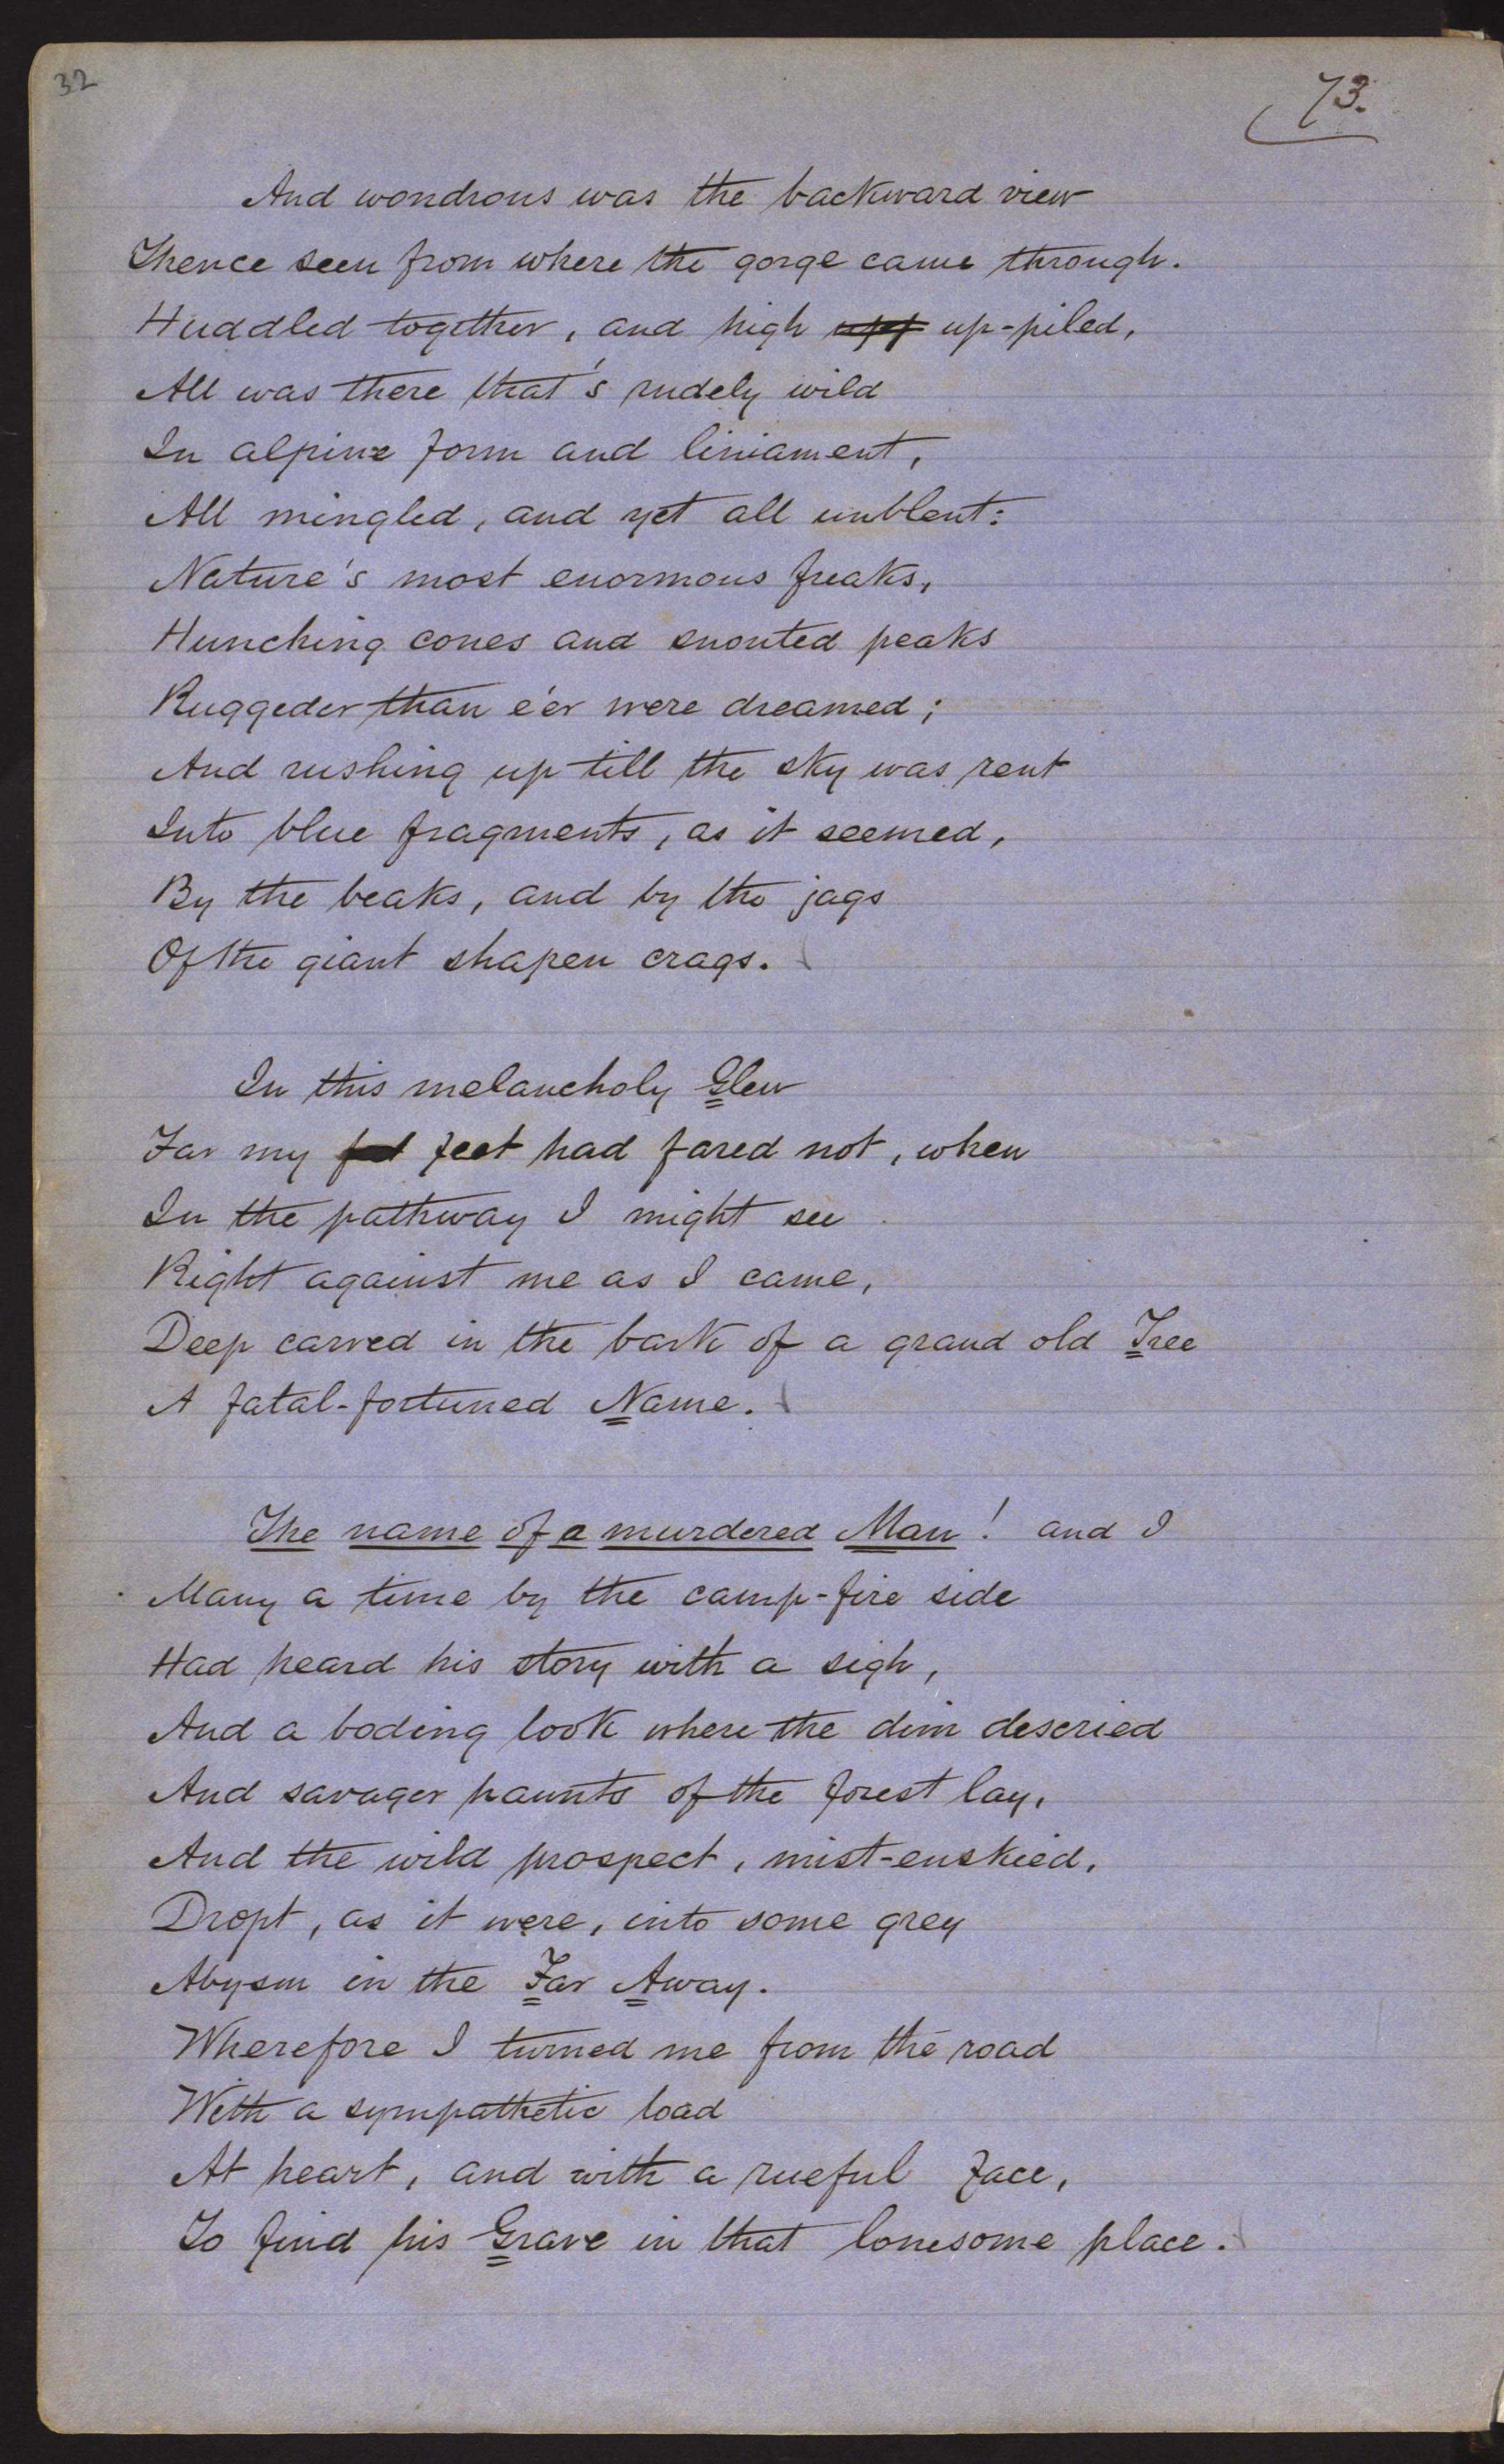 32
73.
And wondrous was the backward view
Thence seen from where the gorge came through.
Huddled together, and high up-piled,
All was there that's rudely wild
In alpine form and liniament,
All mingled, and yet all unblent:
Nature's most enormous freaks,
Hunching cones and snouted peaks
Ruggeder than e'er were dreamed;
And rushing up till the sky was rent
Into blue fragments, as it seemed,
By the beaks, and by the jags
Of the giant shapen crags.
In this melancholy Glen
Far my feet had fared not, when
In the pathway I might see
Right against me as I came,
Deep carved in the bark of a grand old Tree
A fatal-fortuned Name.
The name of a murdered Man! and I
Many a time by the camp-fire side
Had heard his story with a sigh,
And a boding look where the dim descried
And savager haunts of the forest lay,
And the wild prospect, mist-enskied,
Dropt, as it were, into some grey
Abysm in the Far Away.
Wherefore I turned me from the road
With a sympathetic load
At heart, and with a rueful face,
To find his Grave in that lonesome place.